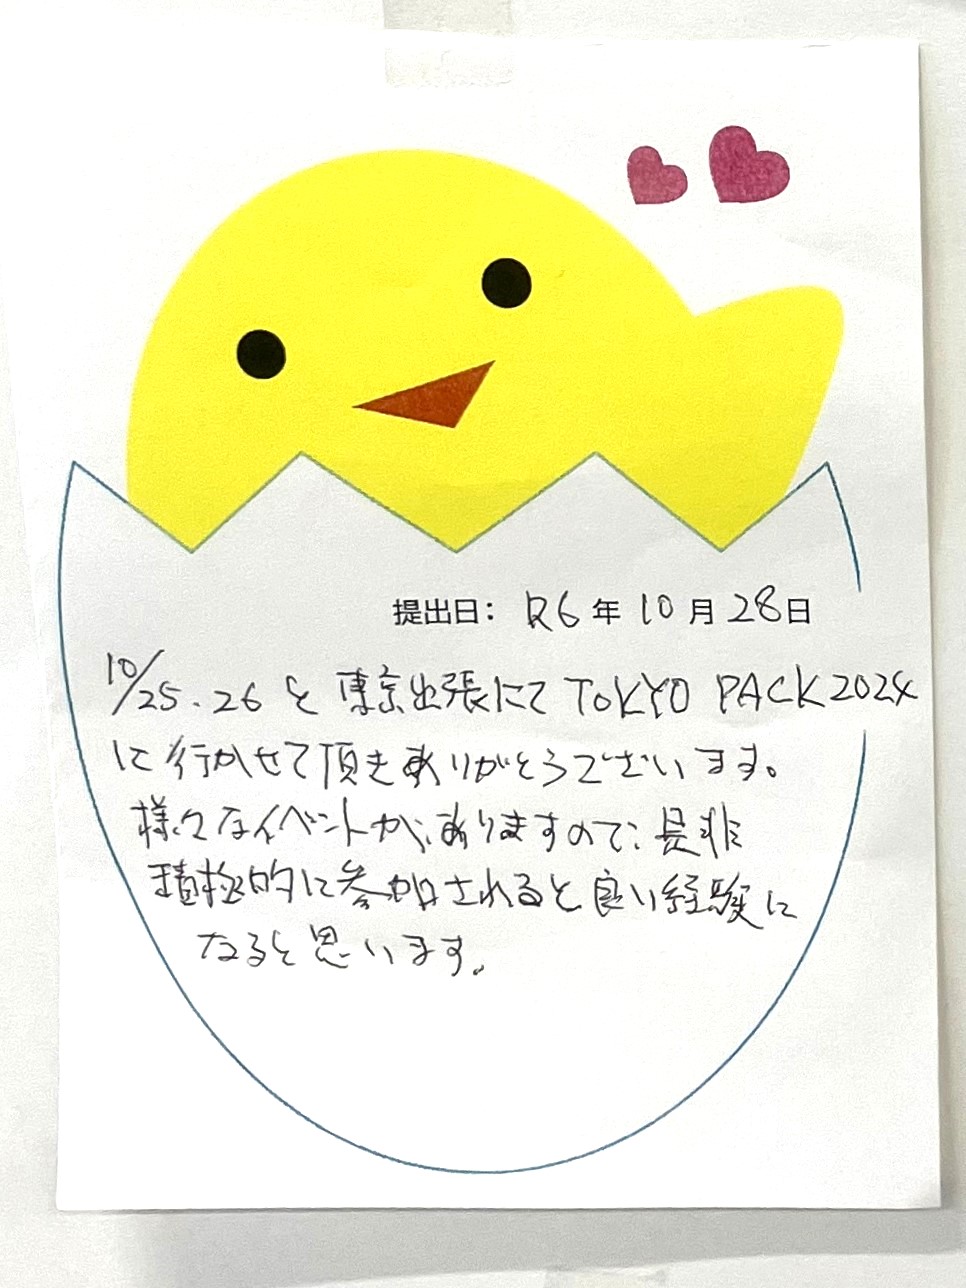 提出日： R6 年 10 月 28 日
10/25.26と東京出張にてTOKYO PACK2024
に行かせて頂きありがとうございます。
様々なイベントがありますので、是非
積極的に参加されると良い経験に
なると思います。